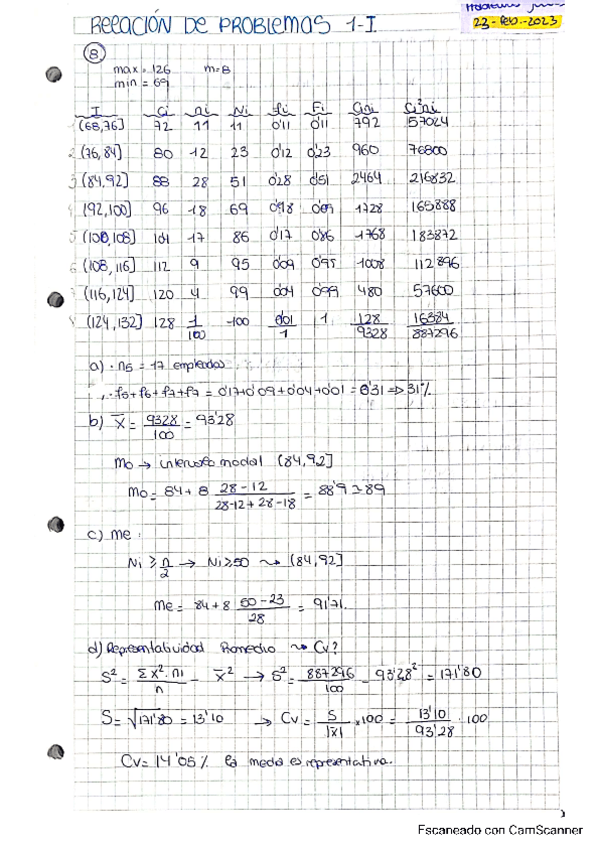 RELACIÓN DE PROBLEMAS 1-I
23-feb.-2023
8
max = 126 m=8
min = 69
I Ci ni Ni fi Fi Cini Ci²ni
(68,76] 72 11 11 0'11 0'11 792 57024
2 (76,84] 80 12 23 0'12 0'23 960 76800
3 (84,92] 88 28 51 0'28 0'51 2464 216832
4 (92,100] 96 18 69 0'18 0'69 1728 165888
5 (100,108] 101 17 86 0'17 0'86 1768 183872
6 (108,116] 112 9 95 0'09 0'95 1008 112896
(116,124] 120 4 99 0'04 0'99 480 57600
(124,132] 128 1 100 0'01 1 128 16384
100 1 9328 887296
a) · n5 = 17 empleados
· f5+f6+f7+f7 = 0'17+0'09+0'04+0'01 = 0'31 => 31%
b) X̄ = 9328/100 = 93'28
Mo → intervalo modal (84,92]
Mo = 84 + 8 (28-12)/(28-12+28-18) = 88'9 ≃ 89
c) Me:
Ni ≥ n/2 → Ni ≥ 50 ⇝ (84,92]
Me = 84 + 8 (50-23)/28 = 91'71
d) Representatividad Promedio ⇝ Cv?
S² = Σx²·ni/n - x̄² → S² = 887296/100 - 93'28² = 171'80
S = √171'80 = 13'10 → Cv = S/|x̄| × 100 = 13'10/93'28 · 100
Cv = 14'05% la media es representativa.
Escaneado con CamScanner